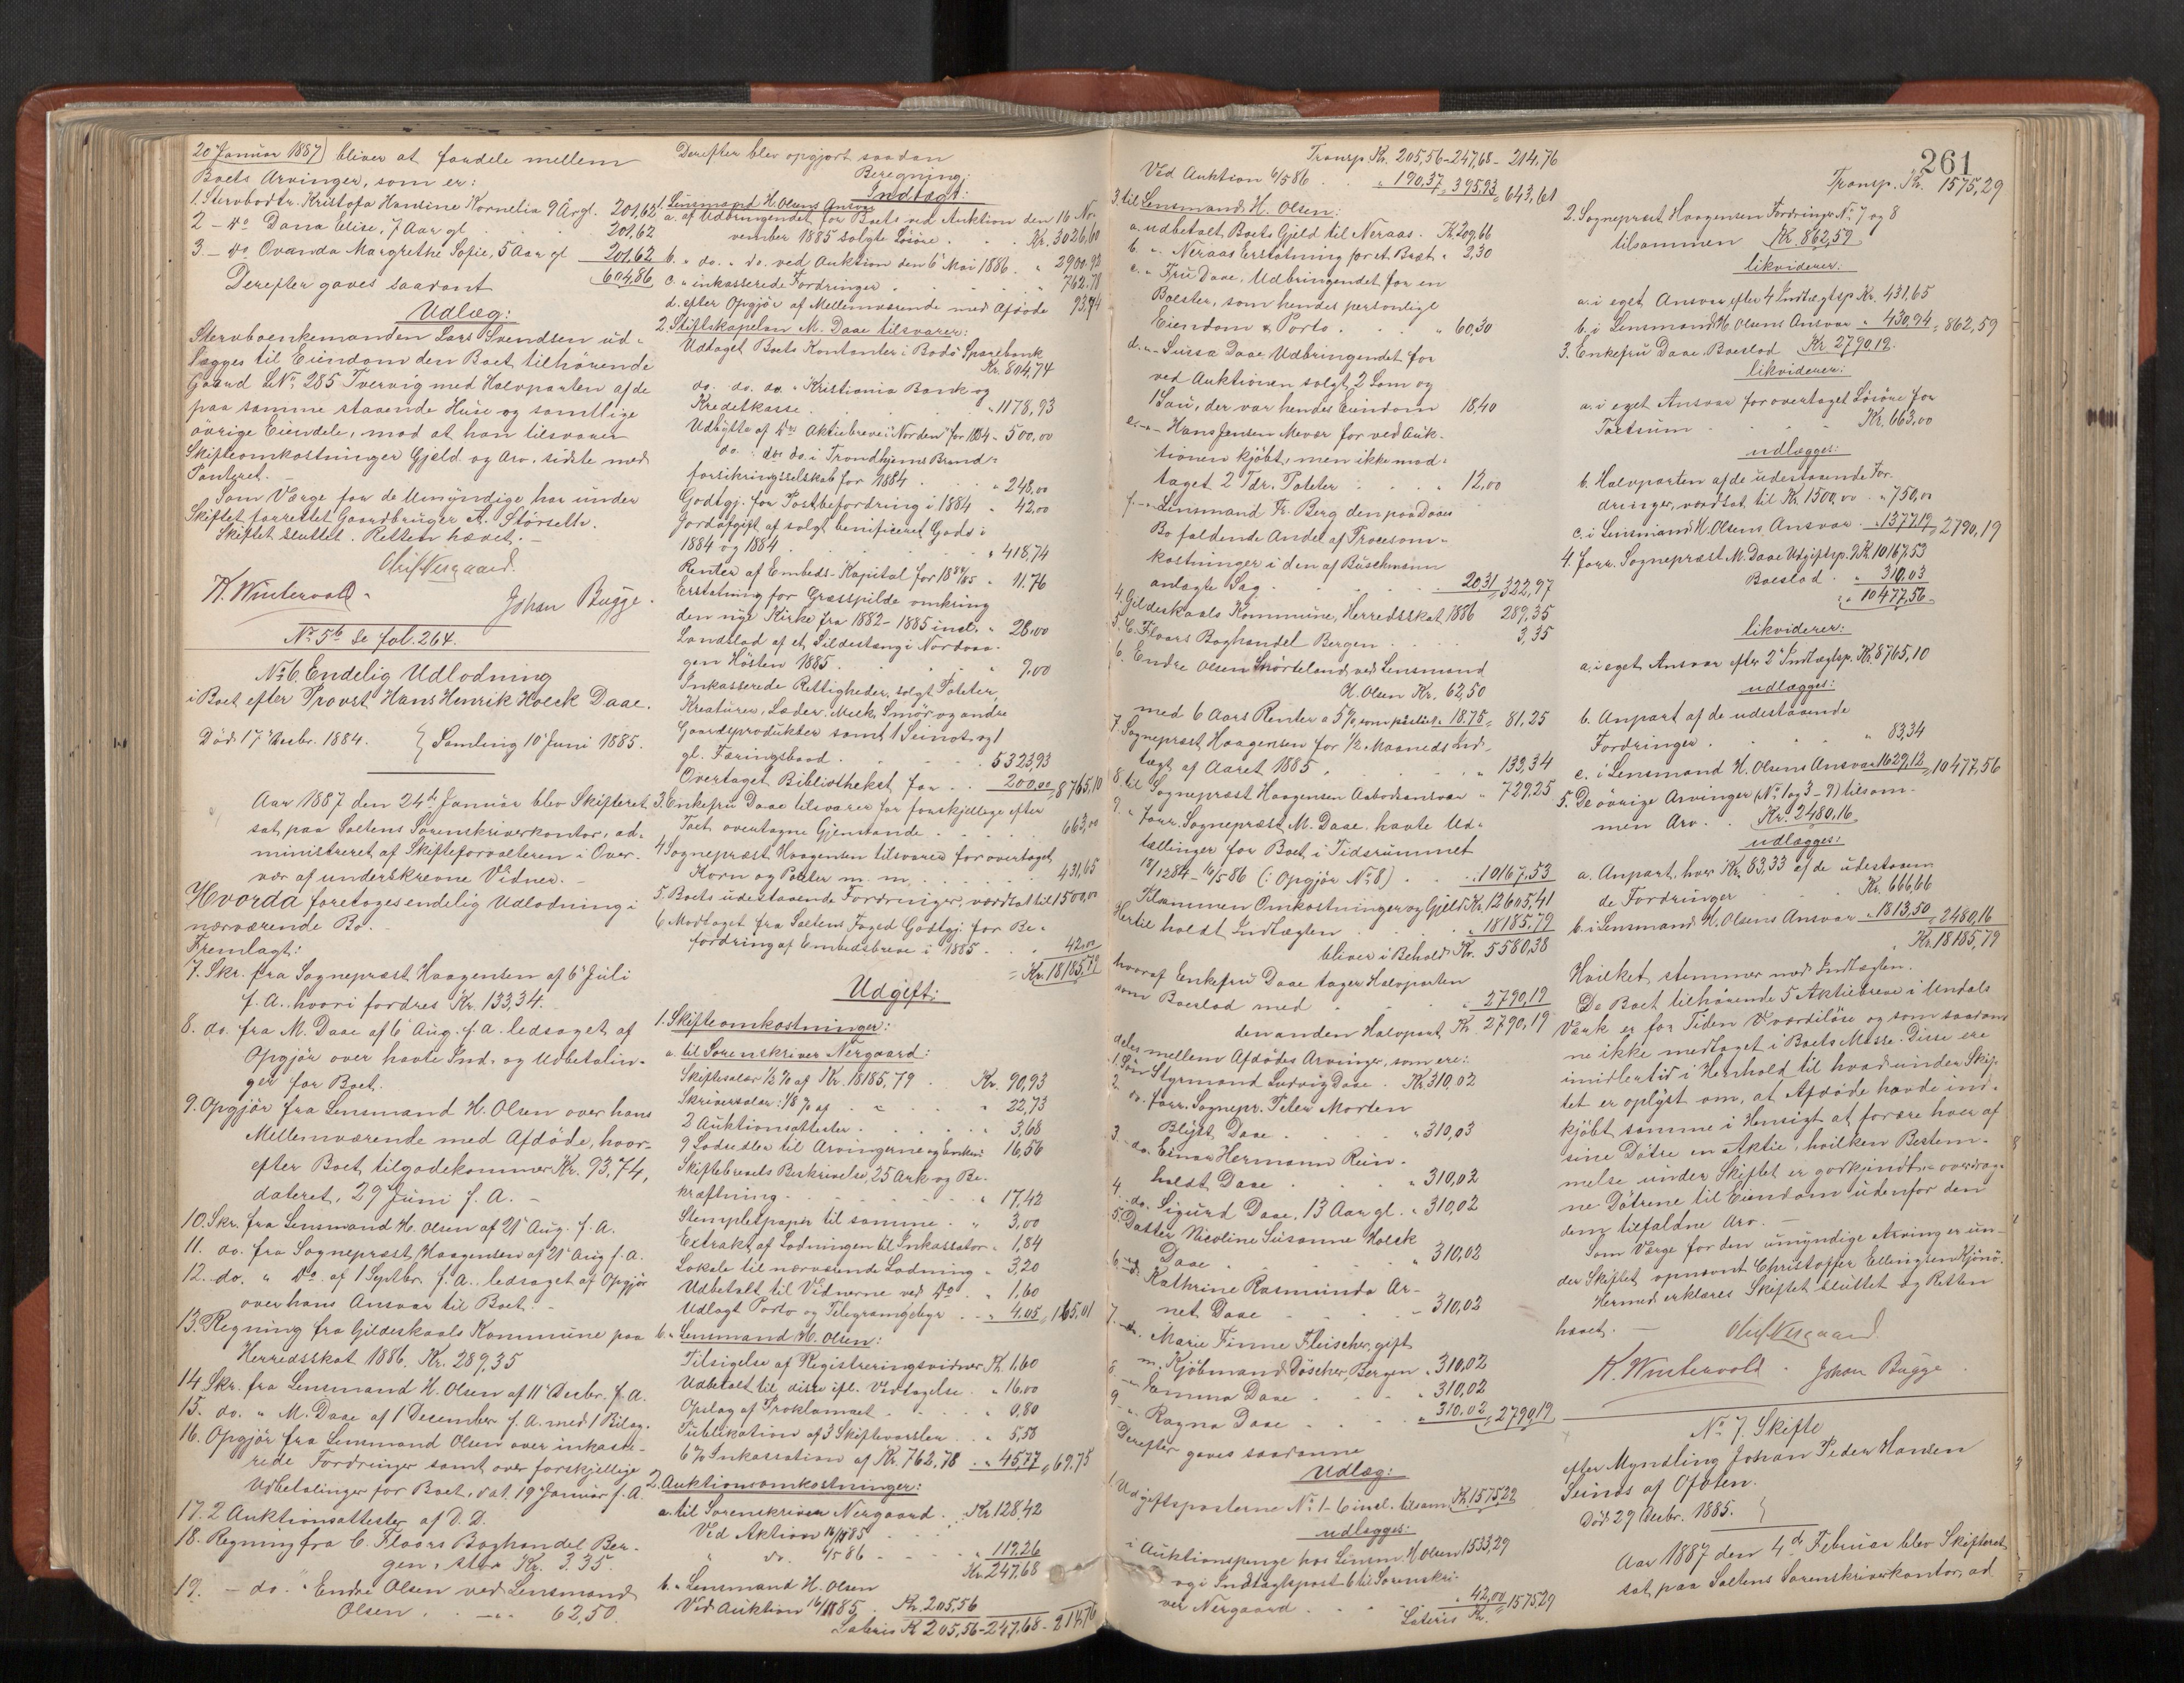 20 Januar 1887) bliver at fordele mellem
Boets Arvinger, som er:
1. Stervbodtr. Kristofa Hansine Kornelia 9 År gl. 201,62
2 - do Dana Elise, 7 Aar gl. 201,62
3. - do Ovanda Margrethe Sofie, 5 Aar gl 201,62
604,86
Derefter gaves saadant
Udlæg:
Stervboenkemanden Lars Svendsen ud-
lægges til Eiendom den Boet tilhørende
Gaard LNo 285 Tvervig med Halvparten af de
paa samme staaende Huse og samtlige
øvrige Eiendele, mod at han tilsvarer
Skifteomkostninger Gjæld og Arv, sidste mod
Panteret.
Som Værge for de Umyndige har under
Skiftet forrettet Gaardbruger A. Störseth.
Skiftet sluttet. Retten hævet.
Chr. Nergaard.
K. Wintervold. Johan Bugge.
No 5b se fol. 264.
No 6. Endelig Udlodning
i Boet efter Provst Hans Henrik Holck Daae.
Död 17 Decbr. 1884. } Samling 10 Juni 1885.
Aar 1887 den 24de Januar blev Skifteret
sat paa Saltens Sorenskriverkontor, ad-
ministreret af Skifteforvalteren i Over-
vær af underskrevne Vidner.
Hvorda foretoges endelig Udlodning i
nærværende Bo.
Fremlagt:
7. Skr. fra Sognepræst Haagensen af 6 Juli
f. A. hvori fordres Kr. 133,34.
8. do. fra M. Daae af 6 Aug. f. a. ledsaget af
Opgjör over havte Ind- og Udbetalin-
ger for Boet.
9. Opgjör fra Lensmand H. Olsen over hans
Mellemværende med Afdöde, hvor-
efter Boet tilgodekommer Kr. 93,74,
dateret, 29 Juni f. A.
10. Skr. fra Lensmand H. Olsen af 21 Aug. f. A.
11. do. fra Sognepræst Haagensen af 21 Aug f. a.
12. do. " do. af 1 Septbr. f. A. ledsaget af Opgjör
over hans Ansvar til Boet.
13. Regning fra Gildeskaals Kommune paa
Herredsskat 1886. Kr. 289,35
14 Skr. fra Lensmand H. Olsen af 11 Decbr. f. A.
15. do. " M. Daae af 1 December f. A. med 1 Bilag.
16. Opgjör fra Lensmand Olsen over inkasse-
rede Fordringer samt over forskjellige
Udbetalinger for Boet, dat. 19 Januar f. A.
17. 2 Auktionsattester af D. D.
18. Regning fra C. Floors Boghandel Ber-
gen, stor Kr. 3.35.
19. - do. " Endre Olsen ved Lensmand
Olsen. 62,50.
Derefter blev opgjort saadan
Beregning:
Indtægt:
1. Lensmand H. Olsens Ansvar
a. af Udbringendet for Boets ved Auktion den 16 No-
vember 1885 solgte Lösöre. Kr. 3026,60
b. " do. " do. ved Auktion den 6 Mai 1886. " 2900.92
c. " inkasserede Fordringer " 762.78
d. efter Opgjör af Mellemværende med Afdöde 93,74
2. Stiftskapelan M. Daae tilsvarer:
Uddaget Boets Kontanter i Bodö Sparebank
Kr. 804,74
do. do. do. " Kristiania Bank og
Kreditkasse. " 1178,93
Udbytte af Aktiebreve i "Norden" for 1884 " 500,00
do. do. i Trondhjems Brand-
forsikringsselskab for 1884 " 248,00
Godtgj. for Postbefordring i 1884 " 42,00
Jordafgift af solgt benificeret Gods i
1884 og 1884 " 418,74
Renter af Embeds-Kapital for 1884/85 " 11.76
Erstatning for Græsspilde omkring
den nye Kirke fra 1882-1885 incl. " 28.00
Landslod af et Sildestæng i Nordvaa-
gen Hösten 1885. 7.00
Inkasserede Rettigheder, solgt Poteter,
Kreaturer, Læder, Melk, Smör og andre
Gaardsprodukter samt 1 Seinot og 1
gl. Færingsbaad. 5323,93
Overtaget Bibliotheket for 200,00 = 8765,10
3. Enkefru Daae tilsvarer for forskjellige efter
Taxt overtagne Gjenstande 663,00
4 Sognepræst Haagensen tilsvarer for overtaget
Korn og Poteter m. m. 431,65
5. Boets udestaaende Fordringer, værdsat til 1500,00
6 Modtaget fra Saltens Foged Godtgj. for Be-
fordring af Embedsbreve i 1885. 42,00
= Kr. 18185,79
Udgift:
1. Skifteomkostninger:
a. til Sorenskriver Nergaard:
Skiftesalær ½ % af Kr. 18185,79 Kr. 90,93
Skriversalær: 1/8 % af " 22,73
2 Auktionsattester " 3,68
9 Lodsedler til Arvingerne og Enken 16,56
Skiftebrevets Beskrivelse, 25 Ark og Be-
kræftning " 17,42
Stempletpapir til samme " 3,00
Extrakt af Lodningen til Inkassator " 1,84
Lokale til nærværende Lodning " 3,20
Udbetalt til Vidnerne ved do. " 1,60
Udlagt Porto og Telegramgebyr " 4,05 = 165,01
b. " Lensmand H. Olsen:
Tilsigelse af Registreringsvidner Kr. 1,60
Udbetalt til disse ifl. Vedtagelse. " 16,00
Opslag af Proklamaet " 0,80
Publikation af 3 Skiftevarsler " 5,58
6 % Inkassation af Kr. 762,78 " 45,77 = 69.75
2. Auktionsomkostninger:
a. til Sorenskriver Nergaard.
Ved Auktion 16/11 85 Kr. 128,42
" do. 6/5 86 " 119.26
Kr. 247,68
b. " Lensmand H. Olsen
Ved Auktion 16/11 85. Kr. 205,56
Lateris Kr 205,56-247,68-214,76
Transp. Kr. 205,56-247,68-214,76
Ved Auktion 6/5 86 " 190,37 = 395,93 = 643,61
3. til Lensmand H. Olsen:
a. udbetalt Boets Gjæld til Neraas. Kr. 209,66
b. " Neraas Erstatning for et Bræt " 2,30
c. " Fru Daae, Udbringendet for en
Bolster, som hendes personlige
Eiendom & Porto " 60,30
d. " Luisa Daae Udbringendet for
ved Auktionen solgt 2 Lam og
1 Sau, der var hendes Eiendom 18,40
e. " Hans Jensen Mevær for ved Auk-
tionen kjöbt, men ikke mod-
taget 2 Tdr. Poteter " 12,00
f. " Lensmand Fr. Berg den paa Daaes
Bo faldende Andel af Procesom-
kostninger i den af Buschmann
anlagte Sag 20,31 = 322,97
4. Gildeskaals Kommune, Herredsskat 1886 289,35
5. C. Floors Boghandel Bergen 3,35
6. Endre Olsen Snörteland ved Lensmand
H. Olsen Kr. 62,50
med 6 Aars Renter a 5 %, som paastaaet 18.75 = 81,25
7. Sognepræst Haagensen for ½ Maaneds Ind-
tægt af Aaret 1885. " 133,34
8. til Sognepræst Haagensen Aabodsansvar " 729,25
9. " forr. Sognepræst M. Daae, havte Ud-
tællinger for Boet i Tidsrummet
18/12 84 - 16/5 86 (: Opgjör No 8) " 10167,53
Tilsammen Omkostninger og Gjeld Kr. 12605,41
Hertil holdt Indtægten " 18185.79
bliver i Behold Kr. 5580,38
hvoraf Enkefru Daae tager Halvparten
som Boeslod med " 2790,19
den anden Halvpart Kr. 2790,19
deles mellem Afdödes Arvinger, som ere:
1. Sön Styrmand Ludvig Daae Kr. 310,02
2. do. forr. Sognepr. Peter Morten
Blydt Daae " 310,03
3. do. Einar Hermann Rein-
holdt Daae " 310,02
4. do. Sigurd Daae, 13 Aar gl. " 310,02
5. Datter Nicoline Susanne Holck
Daae " 310,02
6. do. Kathrine Rasmunda Ar-
net Daae " 310,02
7. do. Marie Finne Fleischer, gift
m. Kjöbmand Döscher, Bergen " 310,02
8. " Emma Daae " 310,02
9. " Ragna Daae " 310.02 = 2790,19
Derefter gaves saadanne
Udlæg:
1. Udgiftsposterne No 1-6 incl. tilsam. Kr. 1575.29
udlægges:
i Auktionspenge hos Lensm. H. Olsen 1533,29
og i Indtægtspost 6 til Sorenskri-
ver Nergaard " 42,00 = 1575,29
Lateris Kr.
261
Transp. Kr. 1575,29
2. Sognepræst Haagensen Fordringer No 7 og 8
tilsammen Kr. 862,59
likviderer:
a. i eget Ansvar efter 4 Indtægtsp. Kr. 431,65
b. i Lensmand H. Olsens Ansvar " 430,94 = 862,59
3. Enkefru Daae, Boeslod Kr 2790.19.
likviderer:
a. i eget Ansvar for overtaget Lösöre for
Taxtsum Kr. 663,00
udlægges:
b. Halvparten af de udestaaende For-
dringer, værdsat til Kr. 1500,00 " 750,00
c. i Lensmand H. Olsens Ansvar " 1377,19 = 2790,19
4. forr. Sognepræst M. Daae Udgiftsp. 9 Kr. 10167,53
Boeslod " 310,03
" 10477,56
likviderer:
a. i eget Ansvar efter 2 Indtægtsp. Kr. 8765,10
udlægges:
b. Anpart af de udestaaende
Fordringer " 83,34
c. i Lensmand H. Olsens Ansvar 1629,12 = 10477,56
5. De övrige Arvinger (No 1 og 3-9) tilsam-
men Arv. Kr. 2480,16
udlægges:
a. Anpart, hver Kr. 83,33 af de udestaaen-
de Fordringer Kr. 666,66
b. i Lensmand H. Olsens Ansvar " 1813,50 = 2480,16
Kr. 18185,79
Hvilket stemmer med Indtægten.
De Boet tilhörende 5 Aktiebreve i Undals
Værk er for Tiden værdilöse og som saadan-
ne ikke medtaget i Boets Masse. Disse ere
imidlertid i Henhold til hvad under Skif-
tet er oplyst om, at Afdöde havde ind-
kjöbt samme i Hensigt at forære hver af
sine Dötre en Aktie, hvilken Bestem-
melse under Skiftet er godkjendt, overdrag-
ne Dötrene til Eiendom udenfor den
dem tilfaldne Arv.
Som Værge for den umyndige Arving er un-
der Skiftet opnævnt Christoffer Ellingsen Kjönö.
Hermed erklæres Skiftet sluttet og Retten
hævet.
Chr. Nergaard
K. Wintervold. Johan Bugge.
No 7. Skifte
efter Myndling Johan Peder Hansen
Seines af Ofoten.
Död 29 Decbr. 1885. }
Aar 1887 den 4de Februar blev Skifteret
sat paa Saltens Sorenskriverkontor, ad